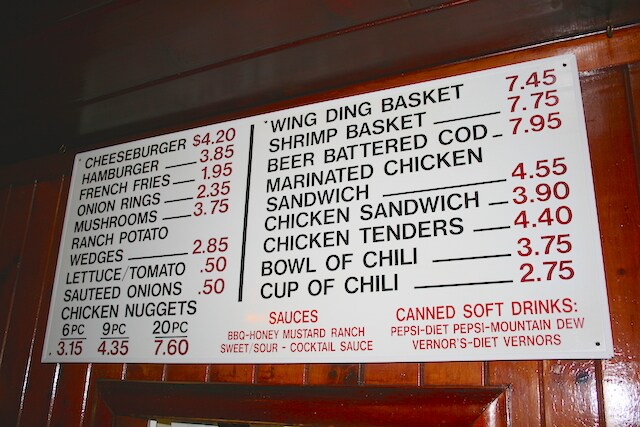 CHEESEBURGER $4.20
HAMBURGER 3.85
FRENCH FRIES 1.95
ONION RINGS 2.35
MUSHROOMS 3.75
RANCH POTATO
WEDGES 2.85
LETTUCE/TOMATO .50
SAUTEED ONIONS .50
CHICKEN NUGGETS
6 PC 9 PC 20 PC
3.15 4.35 7.60
WING DING BASKET 7.45
SHRIMP BASKET 7.75
BEER BATTERED COD 7.95
MARINATED CHICKEN
SANDWICH 4.55
CHICKEN SANDWICH 3.90
CHICKEN TENDERS 4.40
BOWL OF CHILI 3.75
CUP OF CHILI 2.75
SAUCES
BBQ-HONEY MUSTARD RANCH
SWEET/SOUR - COCKTAIL SAUCE
CANNED SOFT DRINKS:
PEPSI-DIET PEPSI-MOUNTAIN DEW
VERNOR'S-DIET VERNORS